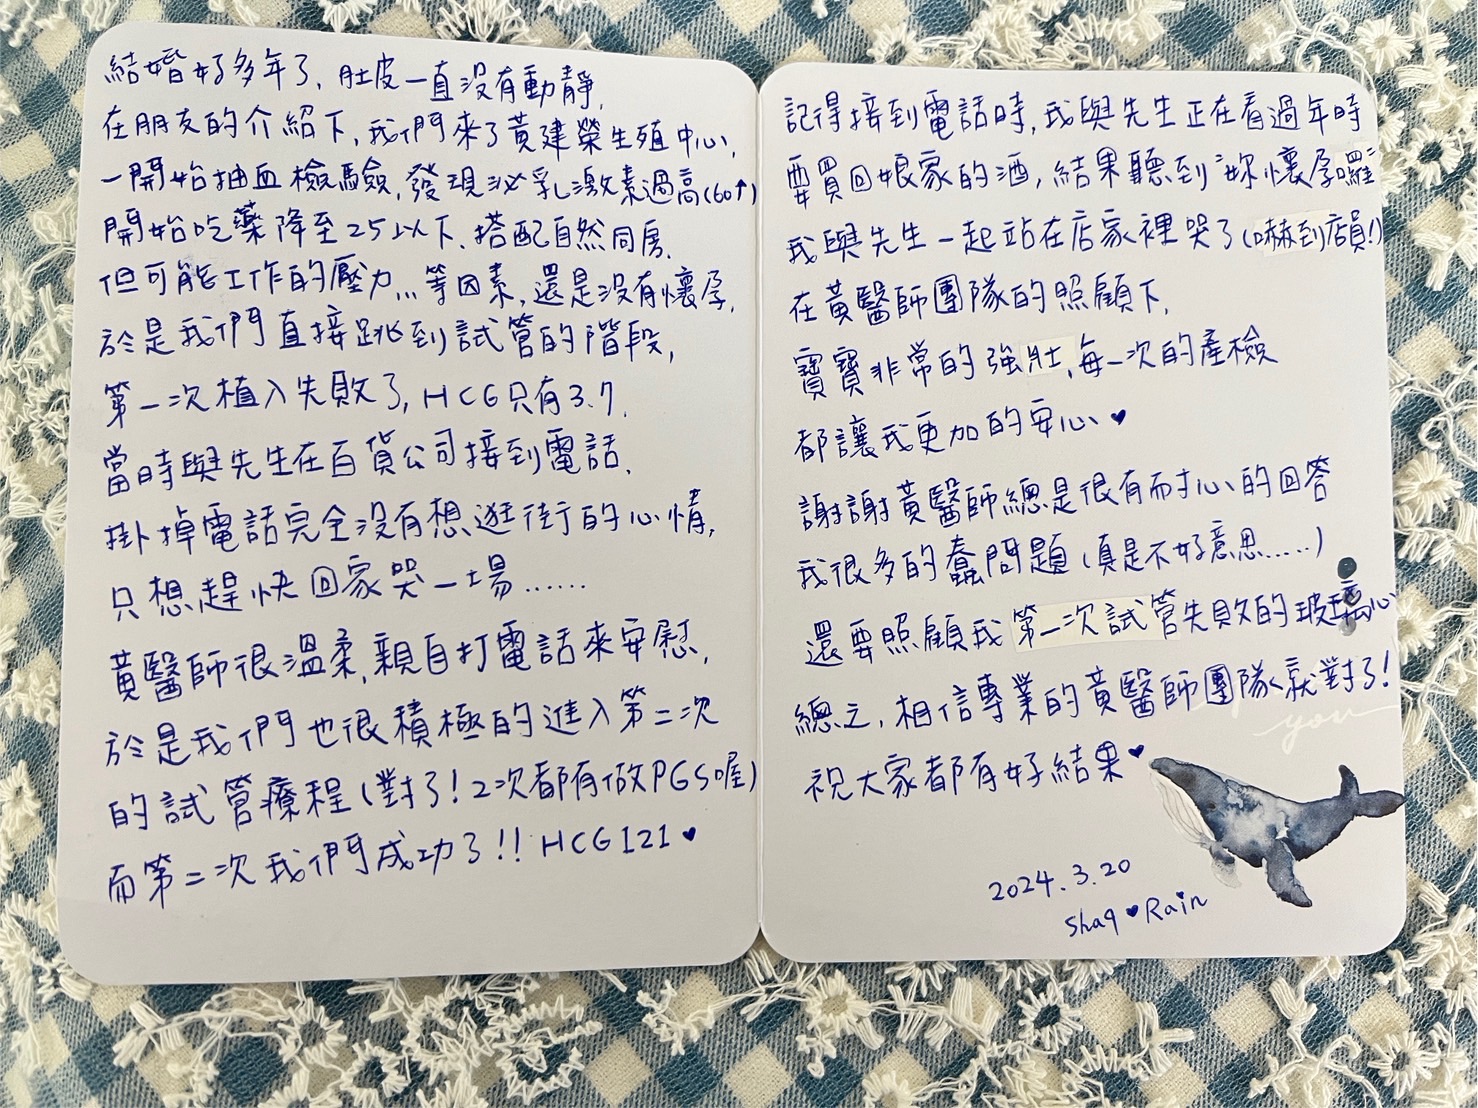 結婚好多年了，肚皮一直沒有動靜，
在朋友的介紹下，我們來了黃建榮生殖中心，
一開始抽血檢驗，發現泌乳激素過高(60↑)
開始吃藥降至25以下、搭配自然同房，
但可能工作的壓力...等因素，還是沒有懷孕，
於是我們直接跳到試管的階段，
第一次植入失敗了，HCG只有3.7，
當時與先生在百貨公司接到電話，
掛掉電話完全沒有想逛街的心情，
只想趕快回家哭一場......
黃醫師很溫柔，親自打電話來安慰，
於是我們也很積極的進入第二次
的試管療程(對了！2次都有做PGS喔)
而第二次我們成功了!! HCG 121♥
記得接到電話時，我與先生正在看過年時
要買回娘家的酒，結果聽到"妳懷孕囉"
我與先生一起站在店家裡哭了(嚇到店員!)
在黃醫師團隊的照顧下，
寶寶非常的強壯，每一次的產檢
都讓我更加的安心♥
謝謝黃醫師總是很有耐心的回答
我很多的蠢問題(真是不好意思......)
還要照顧我第一次試管失敗的玻璃心
總之，相信專業的黃醫師團隊就對了!
you
祝大家都有好結果♥
2024.3.20
Shaq♥Rain